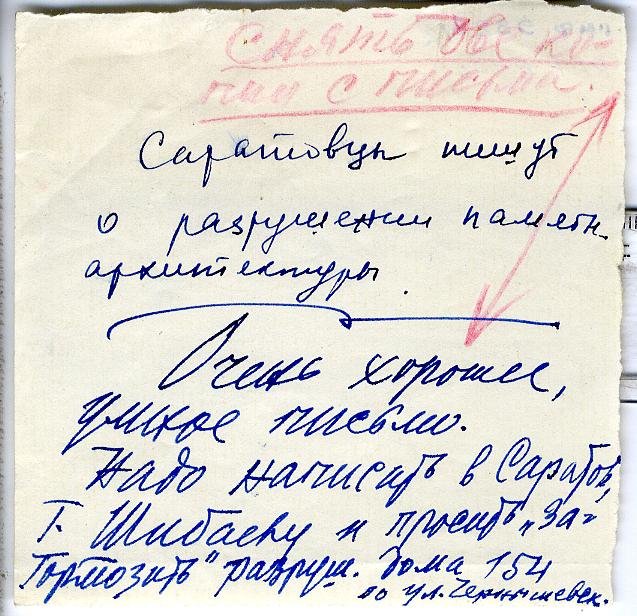 Снять две ко-
пии с письма.
Саратовцы пишут
о разрушении памятн.
архитектуры.
Очень хорошее,
умное письмо.
Надо написать в Саратов,
т. Шибаеву и просить „За-
тормозить" разруш. дома 154
по ул. Чернышевск.